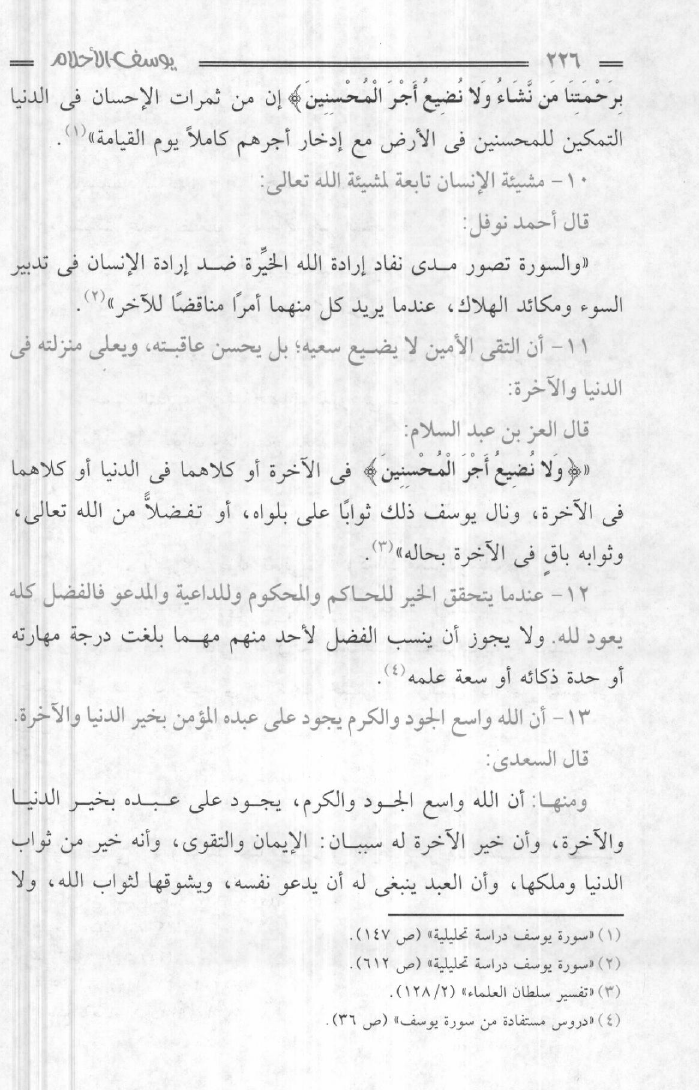 ٢٢٦ يوسف الأحلام
بِرَحْمَتِنَا مَن نَّشَاءُ وَلا نُضِيعُ أَجْرَ الْمُحْسِنِينَ﴾ إن من ثمرات الإحسان فى الدنيا
التمكين للمحسنين فى الأرض مع إدخار أجرهم كاملاً يوم القيامة»(١).
١٠- مشيئة الإنسان تابعة لمشيئة الله تعالى:
قال أحمد نوفل:
«والسورة تصور مـدى نفاد إرادة الله الخيِّرة ضـد إرادة الإنسان فى تدبير
السوء ومكائد الهلاك، عندما يريد كل منهما أمرًا مناقضًا للآخر»(٢).
١١- أن التقى الأمين لا يضـيع سعيه؛ بل يحسن عاقبـته، ويعلى منزلته فى
الدنيا والآخرة:
قال العز بن عبد السلام:
«﴿وَلا نُضِيعُ أَجْرَ الْمُحْسِنِينَ﴾ فى الآخرة أو كلاهما فى الدنيا أو كلاهما
فى الآخرة، ونال يوسف ذلك ثوابًا على بلواه، أو تفـضلاً من الله تعالى،
وثوابه باقٍ فى الآخرة بحاله»(٣).
١٢- عندما يتحقق الخير للحـاكم والمحكوم وللداعية والمدعو فالفضل كله
يعود لله. ولا يجوز أن ينسب الفضل لأحد منهم مهـما بلغت درجة مهارته
أو حدة ذكائه أو سعة علمه(٤).
١٣- أن الله واسع الجود والكرم يجود على عبده المؤمن بخير الدنيا والآخرة.
قال السعدى:
ومنهـا: أن الله واسع الجـود والكرم، يجـود على عبـده بخيـر الدنيـا
والآخرة، وأن خير الآخرة له سببـان: الإيمان والتقوى، وأنه خير من ثواب
الدنيا وملكها، وأن العبد ينبغى له أن يدعو نفسه، ويشوقها لثواب الله، ولا
(١) «سورة يوسف دراسة تحليلية» (ص ١٤٧).
(٢) «سورة يوسف دراسة تحليلية» (ص ٦١٢).
(٣) «تفسير سلطان العلماء» (١٢٨/٢).
(٤) «دروس مستفادة من سورة يوسف» (ص ٣٦).